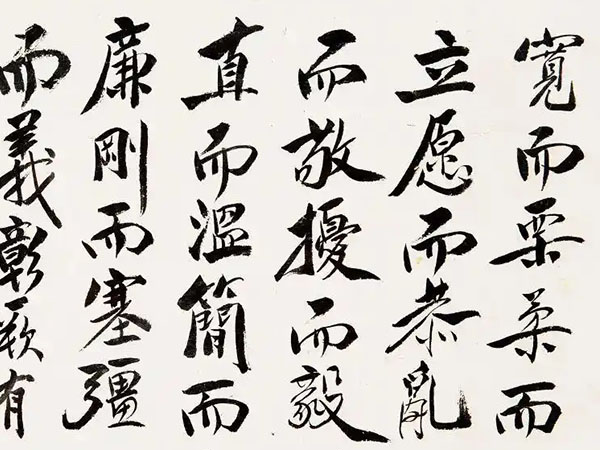 寬而栗柔而
立愿而恭亂
而敬擾而毅
直而溫簡而
廉剛而塞彊
而義彰厥有